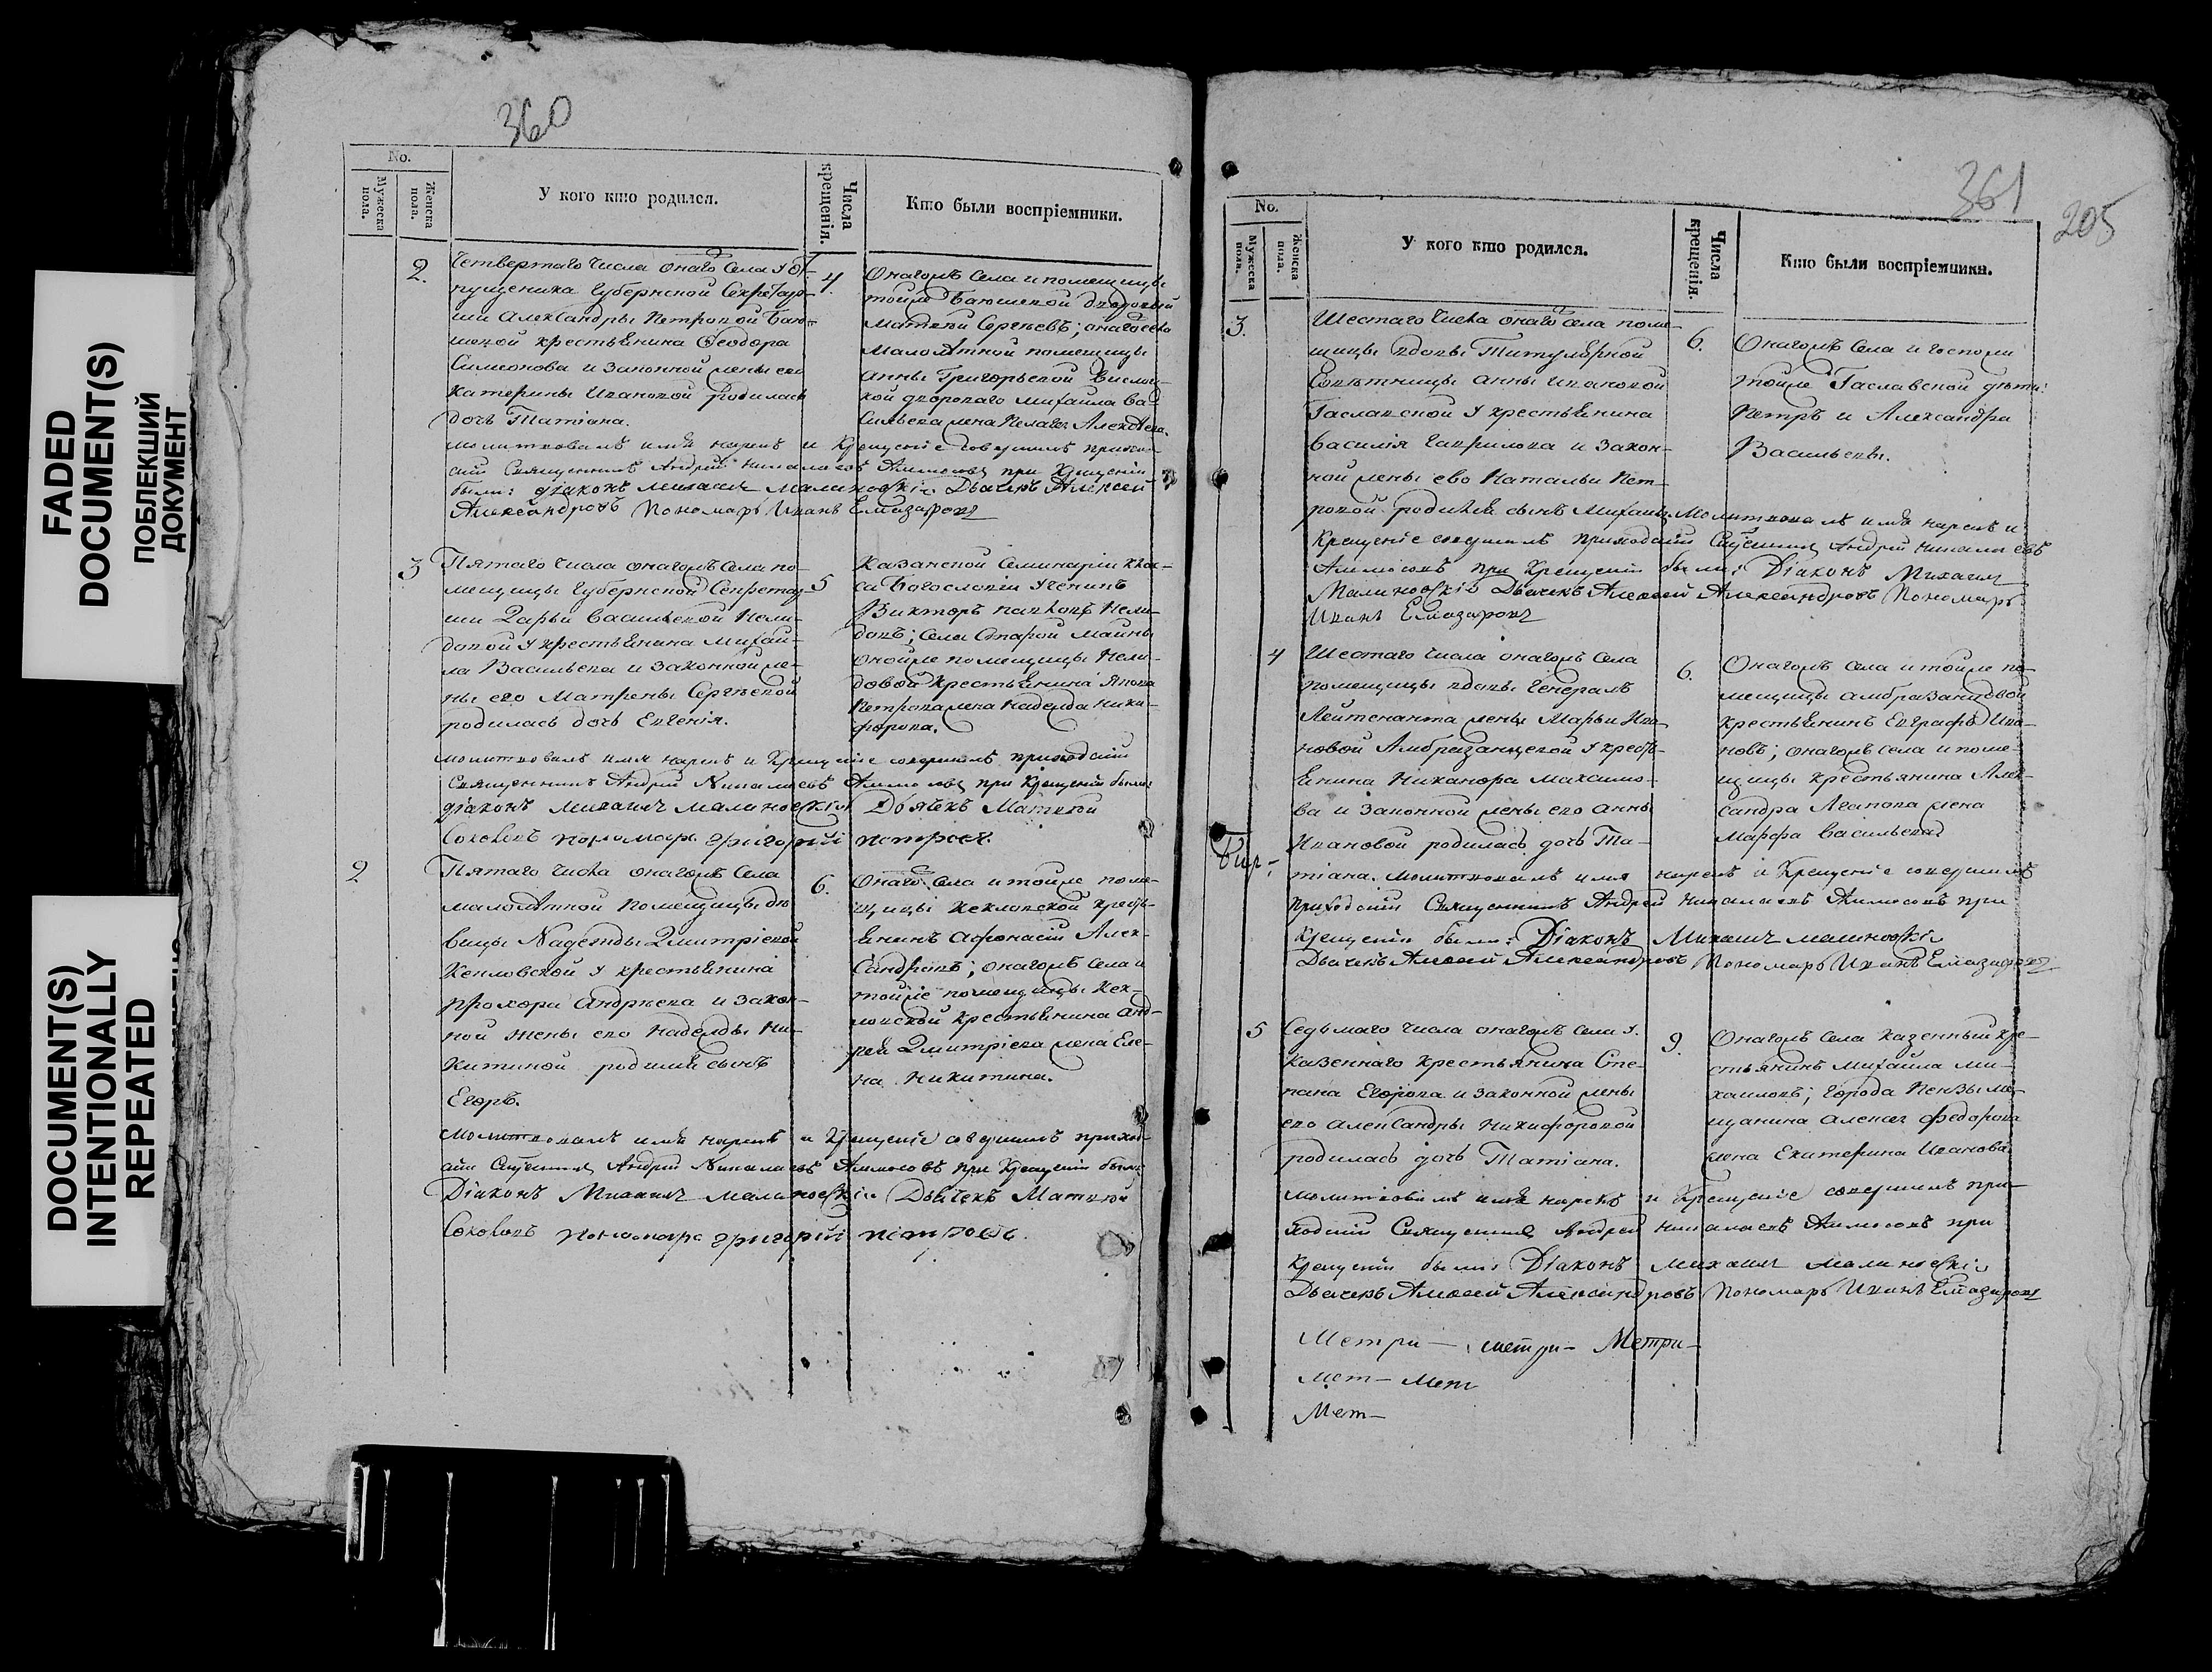 FADED
DOCUMENT(S)
ПОБЛЕКШИЙ
ДОКУМЕНТ
DOCUMENT(S)
INTENTIONALLY
REPEATED
360
No.
Мужеска пола.
Женска пола.
У кого кто родился.
Числа крещенія.
Кто были воспріемники.
2.
Четвертаго числа онаго села у От-
пущеника Губернской Секретар-
ши Александры Петровой Баю-
шевой крестьянина Ѳеодора
Симеонова и законной жены его
Катерины Ивановой родилась
дочь Татіана.
4.
Онагожъ села и помещицы
тойже Баюшевой дворовый
Матвей Сергѣевъ; онаго села
малолѣтной помещицы
Анны Григорьевой
двороваго Михайла Ва-
сильева жена Пелагея Алексѣева.
молитвовалъ имя нарекъ и крещеніе совершилъ приход-
скій Священникъ Андрей Николаевъ при крещеніи
были: діаконъ Михаилъ Малиновскій Дьячекъ Алексей
Александровъ Пономарь Иванъ Елизаровъ
3
Пятаго числа онагожъ села по-
мещицы Губернской Секретар-
ши Дарьи Васильевой Нели-
довой у крестьянина Михай-
ла Васильева и законной же-
ны его Матрены Сергѣевой
родилась дочь Евгенія.
5
Казанской Семинаріи клас-
са Богословіи ученикъ
Викторъ Павловъ Нели-
довъ; села Старой Майны
онойже помещицы Нели-
довой крестьянина Якова
Петрова жена Надежда Ники-
форова.
молитвовалъ имя нарекъ и крещеніе совершилъ приходскій
Священникъ Андрей Николаевъ при крещеніи были:
діаконъ Михаилъ Малиновскій Дьячекъ Матвей
Соковъ пономарь григорій петровъ.
2.
Пятаго числа онагожъ села
малолѣтной помещицы дѣ-
вицы Надежды Дмитріевой
Кекловской у крестьянина
Прохора Андрѣева и закон-
ной жены его Надежды Ни-
китиной родился сынъ
Егоръ.
6.
Онаго села и тойже поме-
щицы Кекловской кресть-
янинъ Афонасій Алек-
сандровъ; онагожъ села и
тойже помещицы Кек-
ловской крестьянина Анд-
рей Дмитріева жена Еле-
на Никитина.
Молитвовалъ имя нарекъ и крещеніе совершилъ приход-
скій Священникъ Андрей Николаевъ при крещеніи были:
Діаконъ Михаилъ Малиновскій Дьячекъ Матвей
Соковъ пономарь григорій петровъ.
361
205
No.
Мужеска пола.
Женска пола.
У кого кто родился.
Числа крещенія.
Кто были воспріемники.
3.
Шестаго числа онаго села поме-
щицы вдовы Титулярной
Совѣтницы Анны Ивановой
Гаславской у крестьянина
Василія Гаврилова и закон-
ной жены ево Натальи Пет-
ровой родился сынъ Михаилъ. Молитвовалъ имя нарекъ и
6.
Онагожъ села и госпожи
тойже Гаславской дѣти:
Петръ и Александра
Васильевы.
крещеніе совершилъ приходскій Священникъ Андрей Николаевъ
при крещеніи были: Діаконъ Михаилъ
Малиновскій Дьячекъ Алексей Александровъ Пономарь
Иванъ Елизаровъ
4
Шестаго числа онагожъ села
помещицы вдовы Генералъ
Лейтенанта жены Марьи Ива-
новой Амбразанцевой у кресть-
янина Никанора Максимо-
ва и законной жены его Анны
Ивановой родилась дочь Та-
тіана. молитвовалъ имя нарекъ и крещеніе совершилъ
6.
Онагожъ села и тойже по-
мещицы Амбразанцовой
крестьянинъ Евграфъ Ива-
новъ; онагожъ села и поме-
щицы крестьянина Алек-
сандра Агапова жена
Марфа Васильева
приходскій Священникъ Андрей Николаевъ при
крещеніи были: Діаконъ Михаилъ Малиновскій
Дьячекъ Алексей Александровъ Пономарь Иванъ Елизаровъ
5
Седьмаго числа онагожъ села у
казеннаго крестьянина Сте-
пана Егорова и законной жены
его Александры Никифоровой
родилась дочь Татіана.
9.
Онагожъ села казенный кре-
стьянинъ Михайла Ми-
хаиловъ; города Пензы ме-
щанина Алексея Федорова
жена Екатерина Иванова.
молитвовалъ имя нарекъ и крещеніе совершилъ при-
ходскій Священникъ Андрей Николаевъ при
крещеніи были: Діаконъ Михаилъ Малиновскій
Дьячекъ Алексей Александровъ Пономарь Иванъ Елизаровъ
Метри- метри- Метри-
Мет- Мет
Мет-